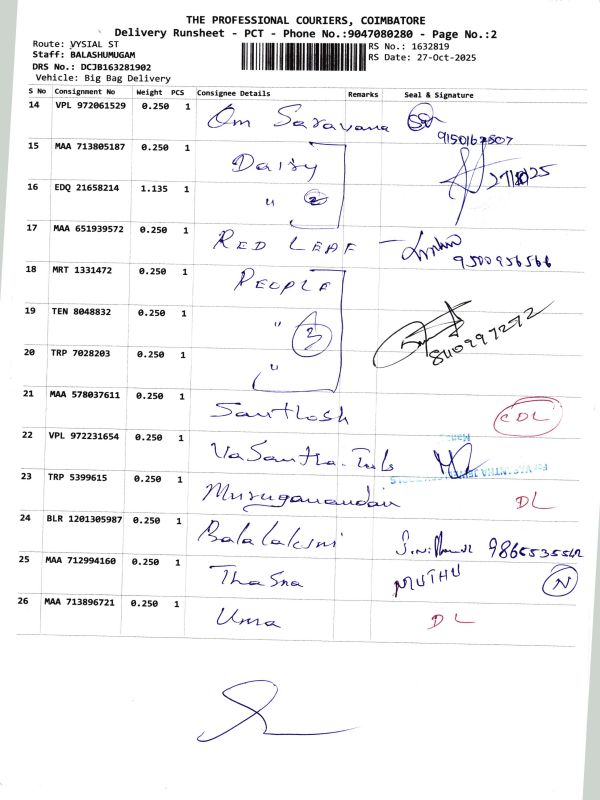 THE PROFESSIONAL COURIERS, COIMBATORE
Delivery Runsheet - PCT - Phone No.:9047080280 - Page No.:2
Route: VYSIAL ST
RS No.: 1632819
Staff: BALASHUMUGAM
RS Date: 27-Oct-2025
DRS No.: DCJB163281902
Vehicle: Big Bag Delivery
S No Consignment No Weight PCS Consignee Details Remarks Seal & Signature
14 VPL 972061529 0.250 1 Om Saravana
9150162507
15 MAA 713805187 0.250 1 Daisy 27/10/25
16 EDQ 21658214 1.135 1 " 2
17 MAA 651939572 0.250 1 RED LEAF
9500956566
18 MRT 1331472 0.250 1 PEOPLE
19 TEN 8048832 0.250 1 " 3
8110997272
20 TRP 7028203 0.250 1 "
21 MAA 578037611 0.250 1 Santhosh CDL
22 VPL 972231654 0.250 1 Vasantha
23 TRP 5399615 0.250 1 Muruganandan DL
24 BLR 1201305987 0.250 1 Balalaksmi
25 MAA 712994160 0.250 1 Thasna MUTHU N
26 MAA 713896721 0.250 1 Uma DL